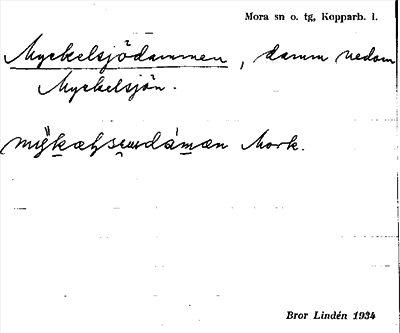 Mora sn o. tg, Kopparb. l.
Myckelsjödammen, damm nedom
Myckelsjön.
Mork.
Bror Lindén 1934